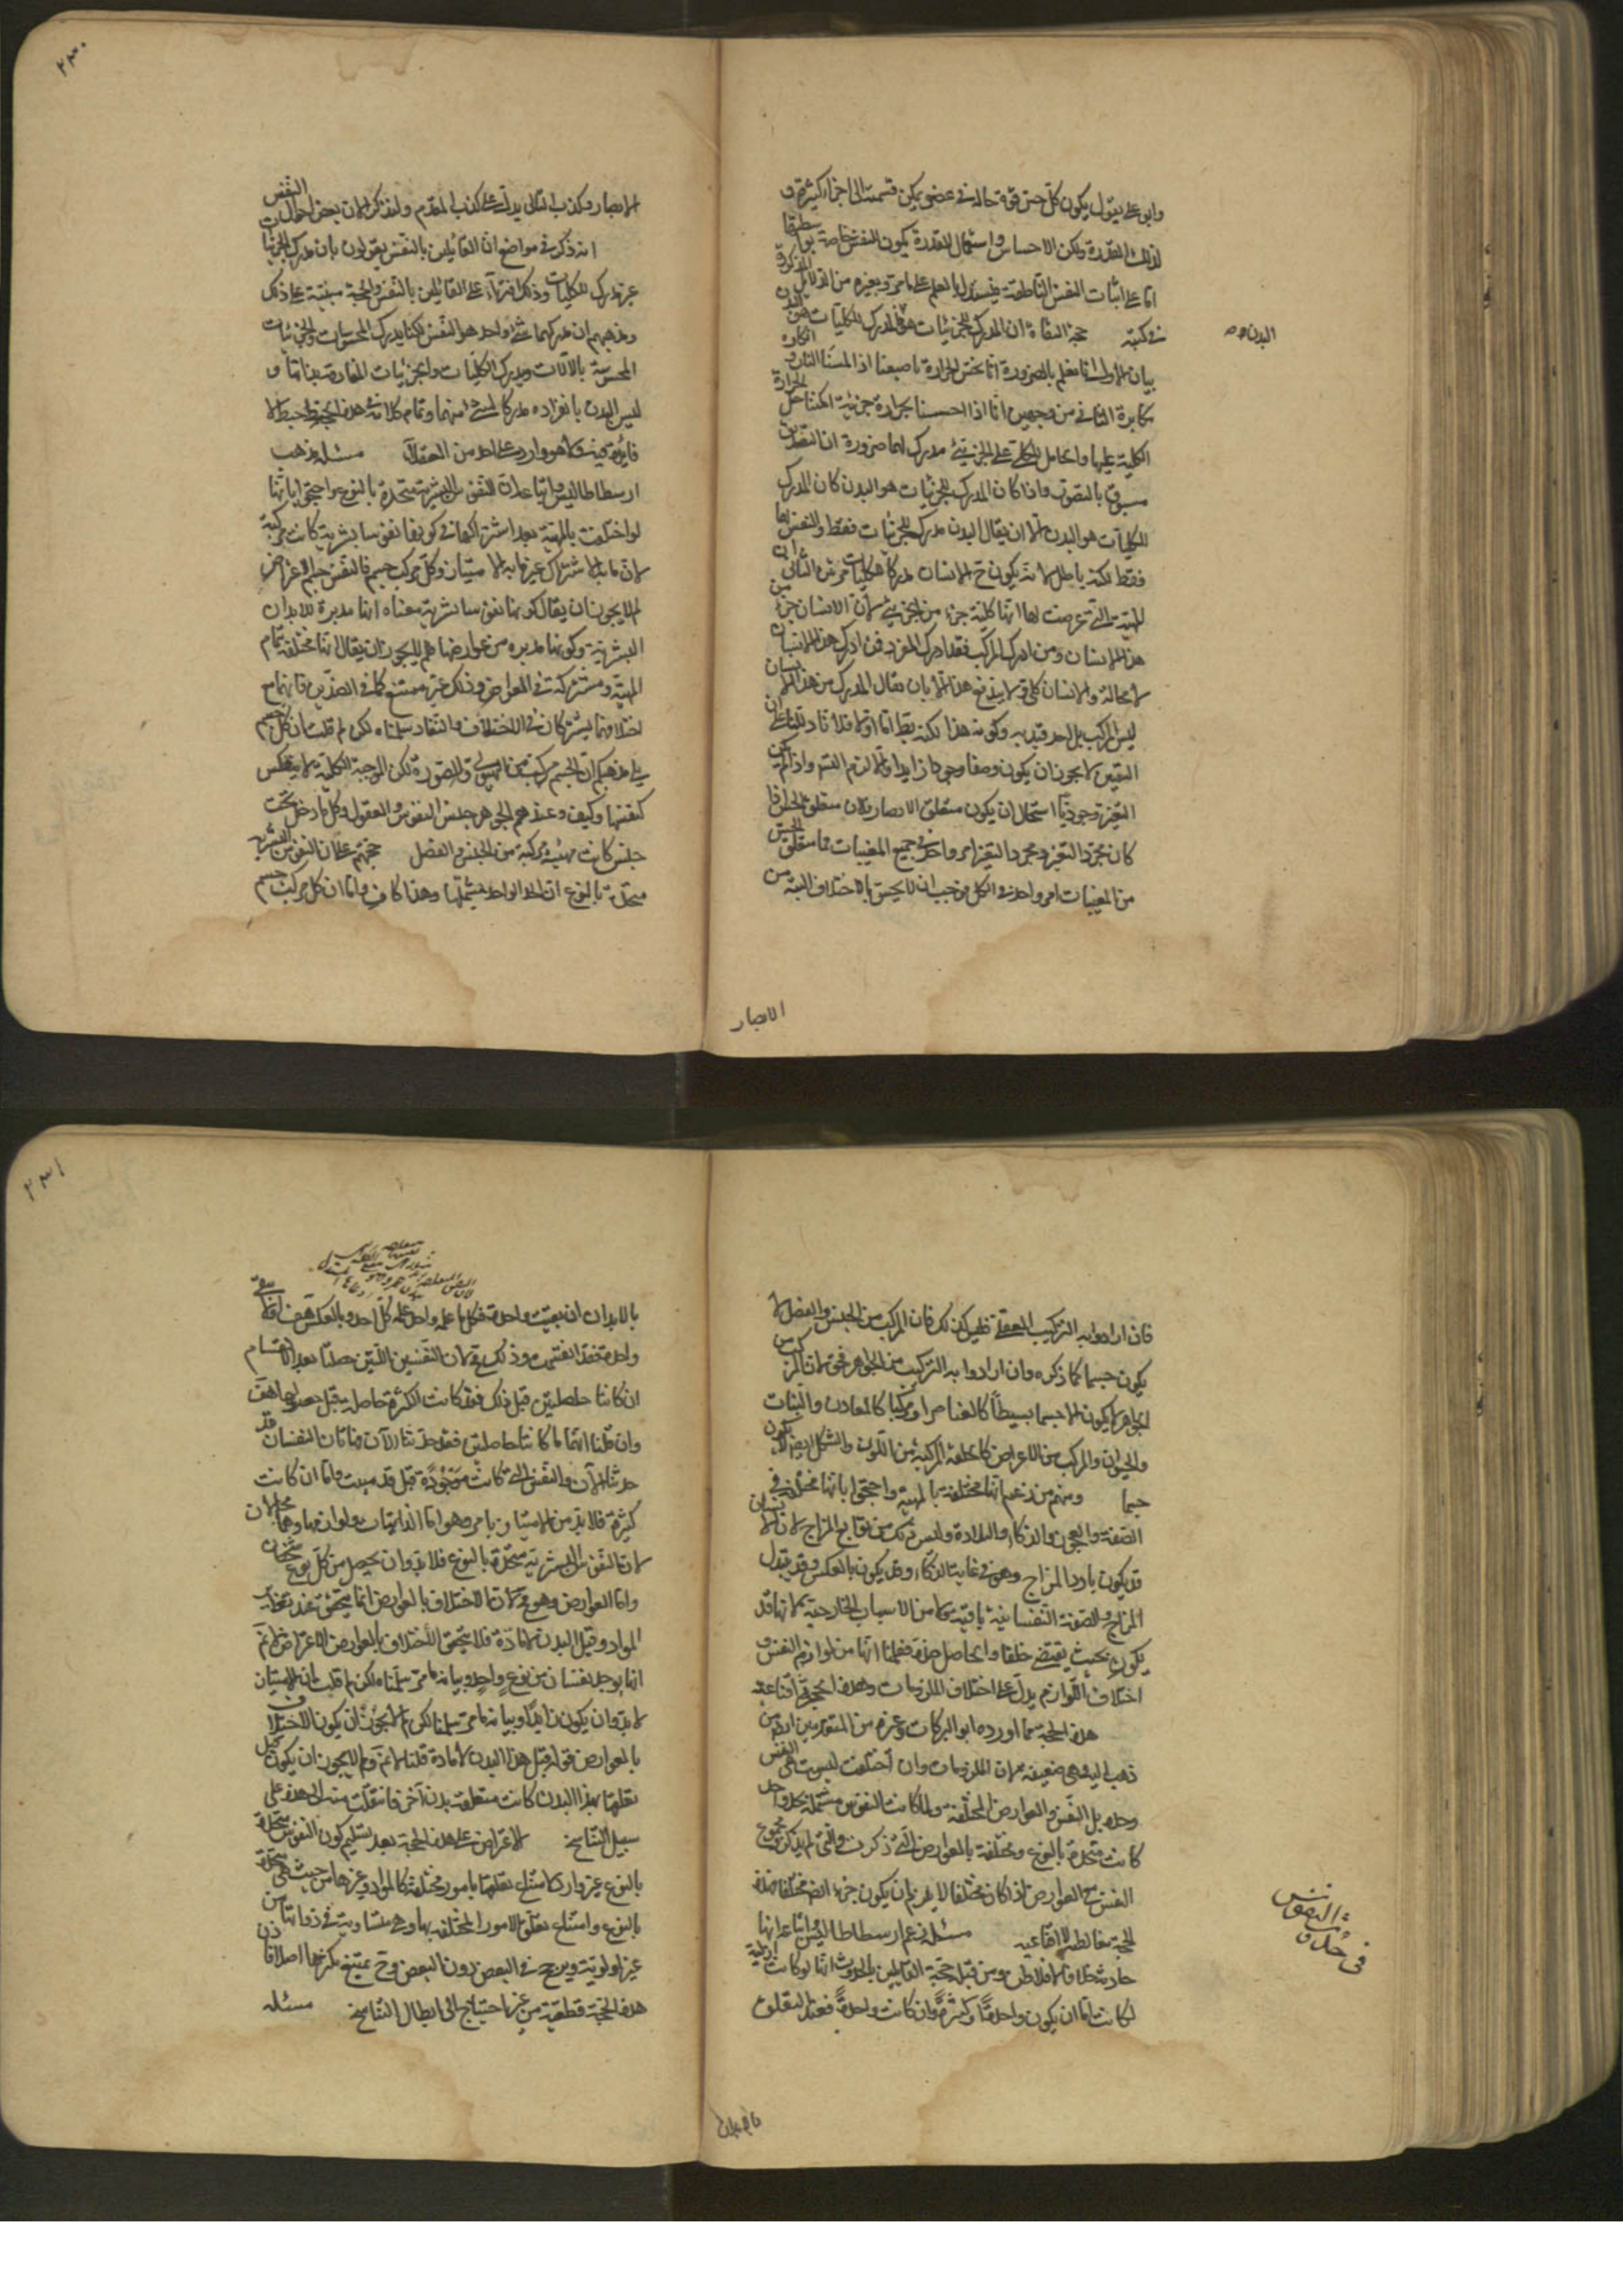 وابو على يقول يكون كلّ حسّ قوّة حالة فى عضو يمكن قسمته الى اجزاء كثيرة و
لذلك القدرة ولكن الاحساس واستعمال القدرة يكون للنفس خاصة
امّا على اثبات النفس الناطقة فيستدل بالعلم على ما مرّ وبغيره من الدلايل المذكورة
فى كتبه حجة النفاة ان المدرك للجزئيات هو البدن فالمدرك للكليات هو البدن
البدن
بيان الاول انا نعلم بالضرورة انا نحسّ الحرارة باصبعنا اذا لمسنا النار و انكاره
مكابرة الثانى من وجهين انّا اذا احسسنا بحرارة جزئية امكننا حمل الحرارة
الكلية عليها والحامل للكلى على الجزئى مدرك لهما ضرورة ان التصديق
مسبوق بالتصور واذا كان المدرك للجزئيات هو البدن كان المدرك
للكليات هو البدن الا ان يقال البدن مدرك للجزئيات فقط والنفس لها
فقط لكنه باطل لانه يكون ح الانسان مدركا للكليات مرتين الثانى ان
المهية التى عرضت لها انها كلية جزء من الجزئى لان الانسان جزء من
هذا الانسان ومن ادرك المركب فقد ادرك المفرد فمن ادرك هذا الانسان
لا محالة والانسان كلى ولا يندفع هذا الا بان يقال المدرك من هذا الانسان
ليس المركب بل احد قيديه وكونه هذا لكنه بط امّا اولا فلانا دللنا على ان
التعين لا يجوز ان يكون وصفا وجوديا زايدا والا لزم التسلسل واذا لم يكن
التعين وجوديا استحال ان يكون متعلق الابصار لان متعلق الحس اذا
كان مجرد التعين ومجرد التعين امر واحد فى جميع المعينات فما متعلق الحس
من المعينات امر واحد فى الكل فوجب ان لا يحس بالاختلاف البتة من
الابصار
٢٣٠
الابصار وكذب التالى يدل على كذب المقدم ولنذكر الان بعض احوال النفس
انه ذكر فى مواضع ان القائلين بالنفس يقولون بان مدرك الجزئيات
غير مدرك للكليات وذلك افتراء على القائلين بالنفس والحجة مبنية على ذلك
ومذهبهم ان مدركهما شئ واحد هو النفس لكنها يدرك المحسوسات والجزئيات
المحسوسة بالآلات ويدرك الكليات والجزئيات المفارقة بذاتها و
ليس البدن بانفراده مدركا لشئ منهما وتمام كلامه فى هذه الحجة خبط لا
فايدة فيه ولا هو وارد على احد من العقلاء مسئله مذهب
ارسطاطاليس واتباعه ان النفوس البشرية متحدة بالنوع واحتجوا بانها
لو اختلفت بالمهية بعد اشتراكها فى كونها نفوسا بشرية كانت مركبة
لان ما به الاشتراك غير ما به الامتياز وكل مركب جسم فالنفس جسم الاعتراض
لم لا يجوز ان يقال كونها نفوسا بشرية معناه انها مدبرة للابدان
البشرية وكونها مدبرة من عوارضها فلم لا يجوز ان يقال انها مختلفة بتمام
المهية ومشتركة فى العوارض وذلك غير ممتنع كما فى الضدين فانهما مع
اختلافهما يشتركان فى الاختلاف والتضاد سلمناه لكن لم قلت ان كل مركب جسم
بلى مذهبكم ان الجسم مركب من الهيولى والصورة لكن الموجبة الكلية لا ينعكس
كنفسها وكيف وعندهم الجوهر جنس النفوس والعقول وكل ما دخل تحت
جنس كانت مهيته مركبة من الجنس والفصل حجتهم على ان النفوس البشرية
متحدة بالنوع ان الحد الواحد يشملها وهذا كاف وامّا ان كل مركب جسم
فان ارادوا به التركيب العقلى فليس كذلك فان المركب من الجنس والفصل لا
يكون جسما كما ذكره وان ارادوا به التركيب من الجواهر فحق لان المركب من
الجواهر لا يكون الا جسما بسيطا كالعناصر او مركبا كالمعادن والنبات
والحيوان والمركب من الاعراض كالخلقة المركبة من اللون والشكل ايضا لا يكون
جسما ومنهم من زعم انها مختلفة بالمهية واحتجوا بانها مختلفة فى
العفة والفجور والذكاء والبلادة وليس ذلك من توابع المزاج لان الانسان
قد يكون بارد المزاج وهو فى غاية الذكاء وقد يكون بالعكس وقد يتبدل
المزاج والصفة النفسانية باقية ولا من الاسباب الخارجية لانها قد
يكون بحيث يقتضى خلقا والحاصل ضده فعلمنا انها من لوازم النفس و
اختلاف اللوازم يدل على اختلاف الملزومات وهذه الحجة اقناعية
هذه الحجة مما اورده ابو البركات وغيره من المتقدمين
ذهب اليه وهى ضعيفة لان الملزومات وان اختلفت ليست هى النفس
وحدها بل النفس والعوارض المختلفة ولما كانت النفوس مشتملة بحد واحد
كانت متحدة بالنوع ومختلفة بالعوارض التى ذكرت والتى لم يذكر و مجموع
النفس مع العوارض اذا كان مختلفا لا يلزم ان يكون جزءه ايضا مختلفا فهذه
الحجة مغالطية لا اقناعية مسئله زعم ارسطاطاليس واتباعه انها
فى حدوث النفوس
حادثة خلافا لافلاطن ومن قبله حجة القائلين بالحدوث انها لو كانت ازلية
لكانت امّا ان يكون واحدة او كثيرة وان كانت واحدة فعند التعلق
بالابدان
٢٣١
بالابدان ان بقيت واحدة فكل ما علمه واحد علمه كل احد وبالعكس هف وان لم يبق
واحدة فقد انقسمت وذلك مح لان النفسين اللتين حصلتا بعد الانقسام
ان كانتا حاصلتين قبل ذلك فقد كانت الكثرة حاصلة قبل حصولها هف
وان قلنا انهما ما كانتا حاصلتين فقد حدثتا الآن فهاتان النفسان قد
حدثتا الآن والنفس التى كانت موجودة قبل قد عدمت وامّا ان كانت
كثيرة فلا بد من الامتياز بامر وهو امّا الذاتيات ولوازمها وهما محالان
لان النفوس البشرية متحدة بالنوع فلا بد وان يحصل من كل نوع شخصان
وامّا العوارض وهو مح لان الاختلاف بالعوارض انما يتحقق عند تغاير
المواد وقبل البدن لا مادة فلا يتحقق الاختلاف بالعوارض الاعتراض لا نم
انه يوجد نفسان من نوع واحد وبيانه ما مر سلمناه لكن لم قلت ان الامتياز
لا بد وان يكون زايدا وبيانه ما مر سلمنا لكن لم لا يجوز ان يكون الاختلاف
بالعوارض قوله قبل هذا البدن لا مادة قلنا لا نم ولم لا يجوز ان يكون قبل
تعلقها بهذا البدن كانت متعلقة ببدن آخر فانتقلت منه الى هذه على
سبيل التناسخ الاعتراض على هذه الحجة بعد تسليم كون النفوس متحدة
بالنوع غير وارد لامتناع تعلقها بامور مختلفة كالمواد وغيرها من حيث هى متحدة
بالنوع وامتناع تعلق الامور المختلفة بها وهى متساوية فى ذواتها من
غير اولوية ويرجح فى البعض دون البعض وح يمتنع تكثرها اصلا فاذن
هذه الحجة قطعية من غير احتياج الى ابطال التناسخ مسئله